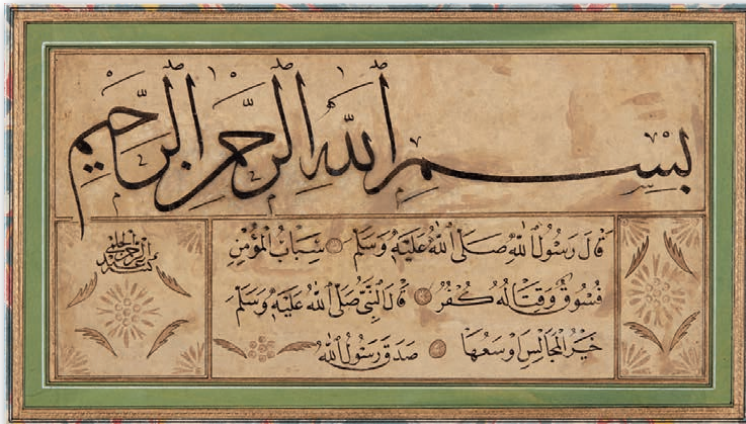 بِسْمِ اللّٰهِ الرَّحْمٰنِ الرَّحِيمِ
قَالَ رَسُولُ اللّٰهِ صَلَّى اللّٰهُ عَلَيْهِ وَسَلَّمَ سِبَابُ الْمُؤْمِنِ
فُسُوقٌ وَقِتَالُهُ كُفْرٌ قَالَ النَّبِيُّ صَلَّى اللّٰهُ عَلَيْهِ وَسَلَّمَ
خَيْرُ الْمَجَالِسِ اَوْسَعُهَا صَدَقَ رَسُولُ اللّٰهِ